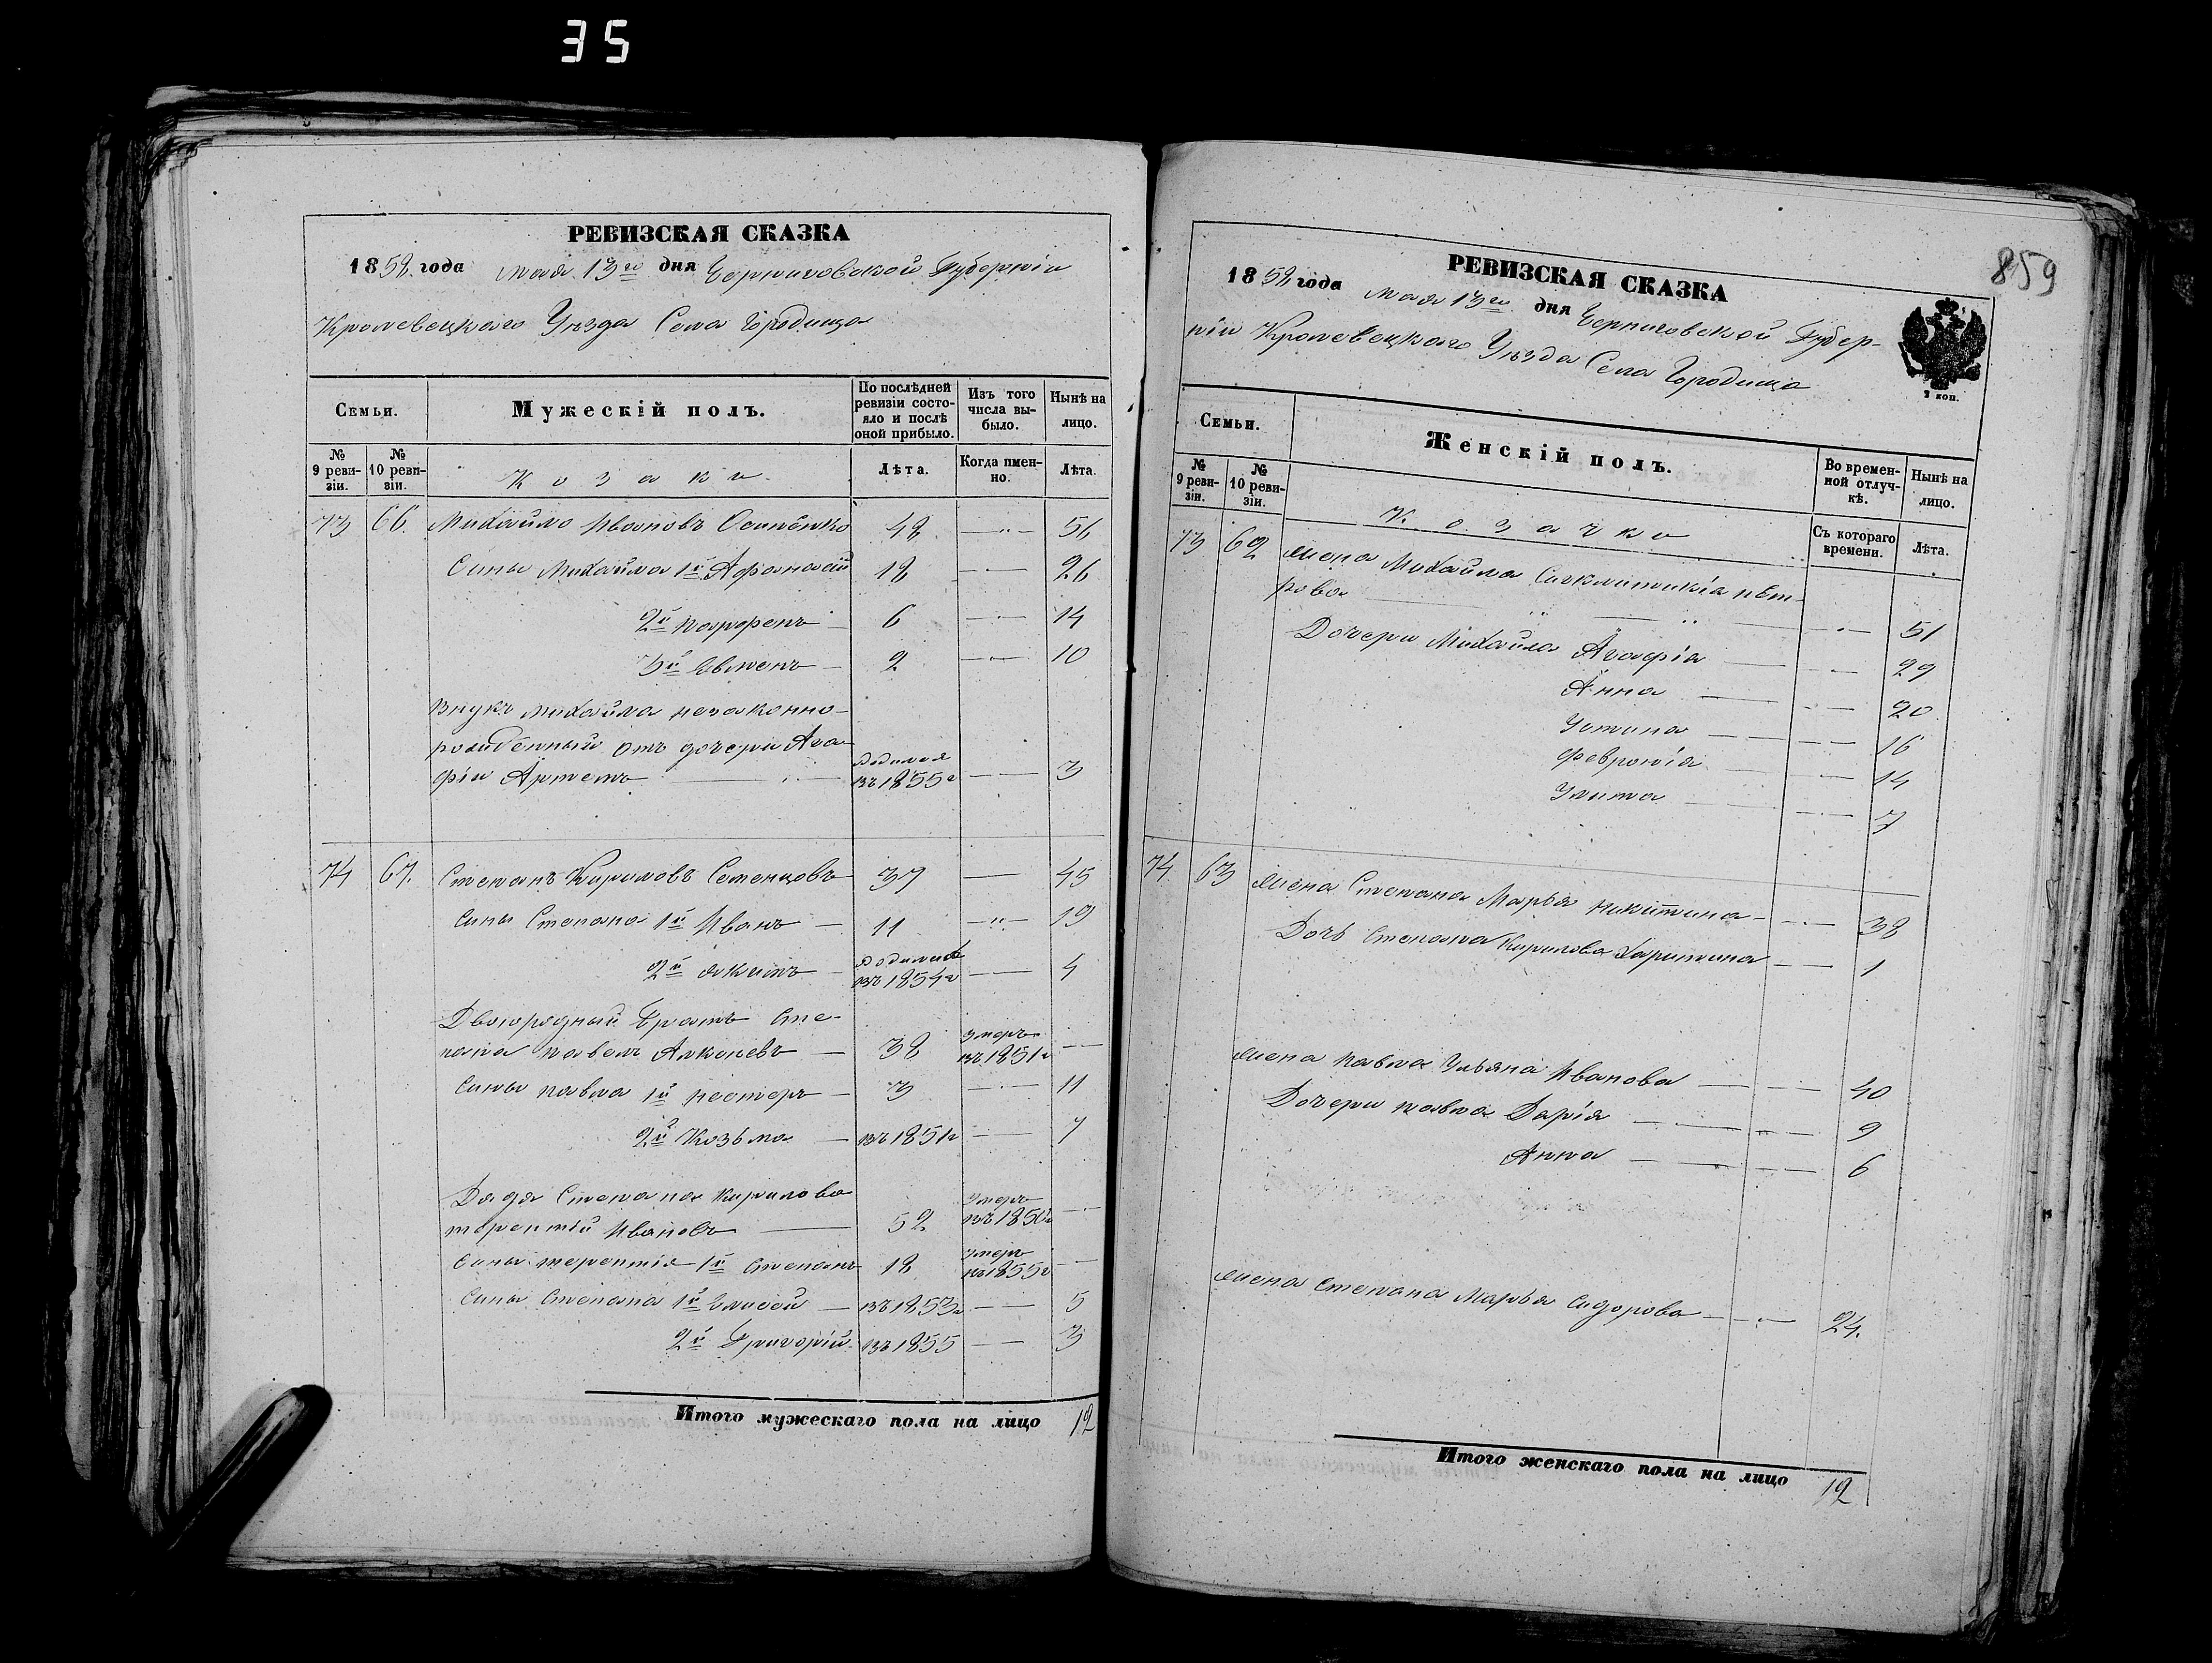 35
РЕВИЗСКАЯ СКАЗКА
1858 года мая 13го дня Черниговской Губерніи
Кролевецкаго Уѣзда Села Городища
Семьи.
Мужескій полъ.
По послѣдней ревизіи состояло и послѣ оной прибыло.
Изъ того числа выбыло.
Нынѣ на лицо.
№ 9 ревизіи.
№ 10 ревизіи.
Козаки
Лѣта.
Когда имен-но.
Лѣта.
73 66. Михайло Ивановъ Осипенко 48 56
Сины Михайла 1й Афанасій 18 26
2й Парфенъ 6 14
3й Евменъ 2 10
Внукъ Михайла незаконно-
рожденный отъ дочери Ага-
фіи Артемъ родился въ 1855г 3
74 67. Степанъ Кириловъ Семенцовъ 37 45
Сины Степана 1й Иванъ 11 19
2й Якимъ родился въ 1854г 4
Двоюродный братъ Сте-
пана Павелъ Алексѣевъ 38 умеръ въ 1851г
Сины Павла 1й Нестеръ 3 11
2й Козьма въ 1851г 7
Дядя Степана Кирилова
Терентій Ивановъ 52 умеръ въ 1850г
Сины Терентія 1й Степанъ 18 умеръ въ 1855г
Сины Степана 1й Елисей въ 1853г 5
2й Григорій въ 1855 3
Итого мужескаго пола на лицо 12
859
РЕВИЗСКАЯ СКАЗКА
1858 года мая 13го дня Черниговской Губер-
ніи Кролевецкаго Уѣзда Села Городища
2 коп.
Семьи.
Женскій полъ.
Во времен-ной отлуч-кѣ.
Нынѣ на лицо.
№ 9 реви-зіи.
№ 10 реви-зіи.
Козачки
Съ котораго времени.
Лѣта.
73 62 Жена Михайла Сигклитикія Пет-
рова 51
Дочери Михайла Агафія 29
Анна 20
Устина 16
Февронія 14
Улита 7
74 63 Жена Степана Марья Никитина 38
Дочь Степана Кирилова Харитина 1
Жена Павла Ульяна Иванова 40
Дочери Павла Дарія 9
Анна 6
Жена Степана Марья Сидорова 24.
Итого женскаго пола на лицо 12